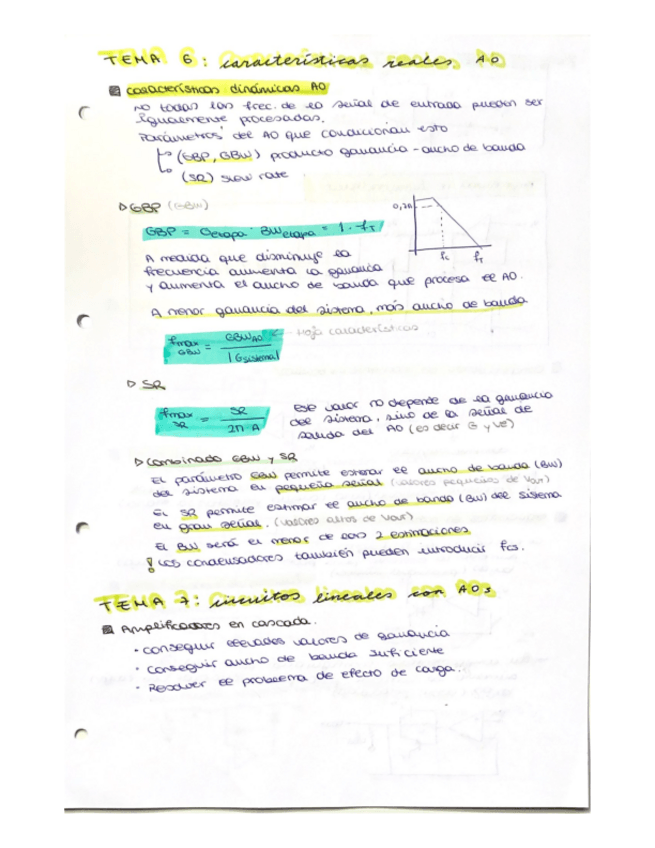 TEMA 6: características reales AO
características dinámicas AO
NO todas las frec. de la señal de entrada pueden ser
igualmente procesadas.
Parámetros del AO que condicionan esto
(GBP, GBW) producto ganancia - ancho de banda
(SR) slew rate
GBP (GBW)
GBP = Getapa · BWetapa = 1 · fT
A medida que disminuye la
frecuencia aumenta la ganancia
y aumenta el ancho de banda que procesa el AO.
A menor ganancia del sistema, más ancho de banda
fmax GBW = GBWAO / |Gsistema| ← Hoja características
SR
fmax SR = SR / 2π A
Ese valor no depende de la ganancia
del sistema, sino de la señal de
salida del AO (es decir G y Ve)
Combinado GBW y SR
El parámetro GBW permite estimar el ancho de banda (BW)
del sistema en pequeña señal (valores pequeños de Vour)
El SR permite estimar el ancho de banda (BW) del sistema
en gran señal. (valores altos de Vour)
El BW será el menor de las 2 estimaciones
! Los condensadores también pueden introducir fcs.
TEMA 7: circuitos lineales con AOs
Amplificadores en cascada.
· conseguir elevados valores de ganancia
· conseguir ancho de banda suficiente
· Resolver el problema de efecto de carga.